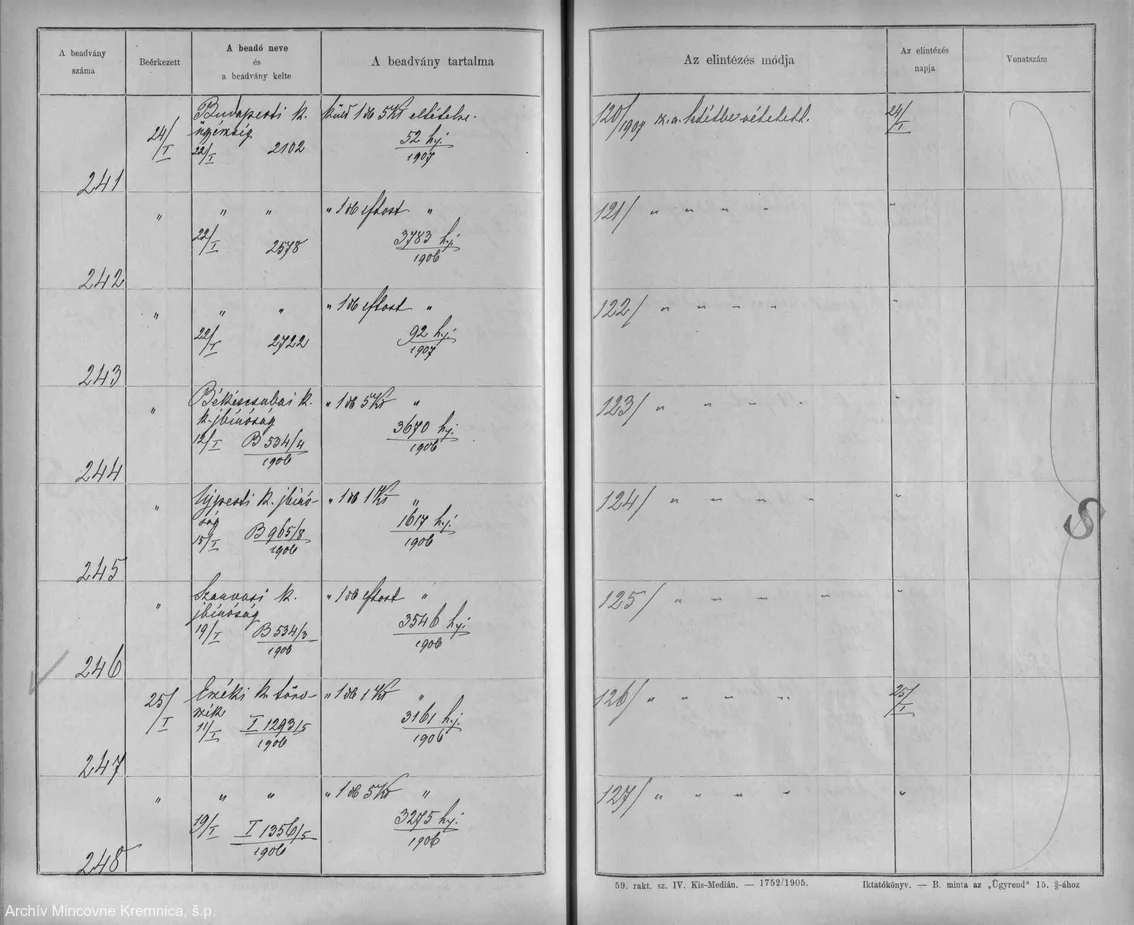 A beadvány száma
Beérkezett
A beadó neve és a beadvány kelte
A beadvány tartalma
Az elintézés módja
Az elintézés napja
Vonatszám
241
24/I
Budapesti k.
ügyészség
22/I 2102
küld 1 db 5 Kr
52 hj.
1907
120/1907
24/I
242
" " "
22/I 2578
" 1 db "
3783 hj.
1906
121/ " " " "
"
243
" " "
22/I 2722
" 1 db "
92 hj.
1907
122/ " " " "
"
244
"
Békéscsabai k.
k. jbíróság
12/I B 534/4
1906
" 1 db 5 Kr "
3670 hj.
1906
123/ " " " "
"
245
"
Újpesti k. jbíró-
ság
15/I B 965/8
1906
" 1 db 1 Kr "
1617 hj.
1906
124/ " " " "
"
246
"
Szarvasi k.
jbíróság
19/I B 534/3
1906
" 1 db "
3546 hj.
1906
125/ " " " "
247
25/I
Eszéki k. törv-
szék
11/I I 1293/5
1906
" 1 db 1 Kr "
3161 hj.
1906
126/ " " " "
25/I
248
" " "
19/I I 1356/5
1906
" 1 db 5 Kr "
3275 hj.
1906
127/ " " " "
"
8
59. rakt. sz. IV. Kis-Medián. — 1752/1905.
Iktatókönyv. — B. minta az „Ügyrend" 15. §-ához
Archív Mincovne Kremnica, š.p.